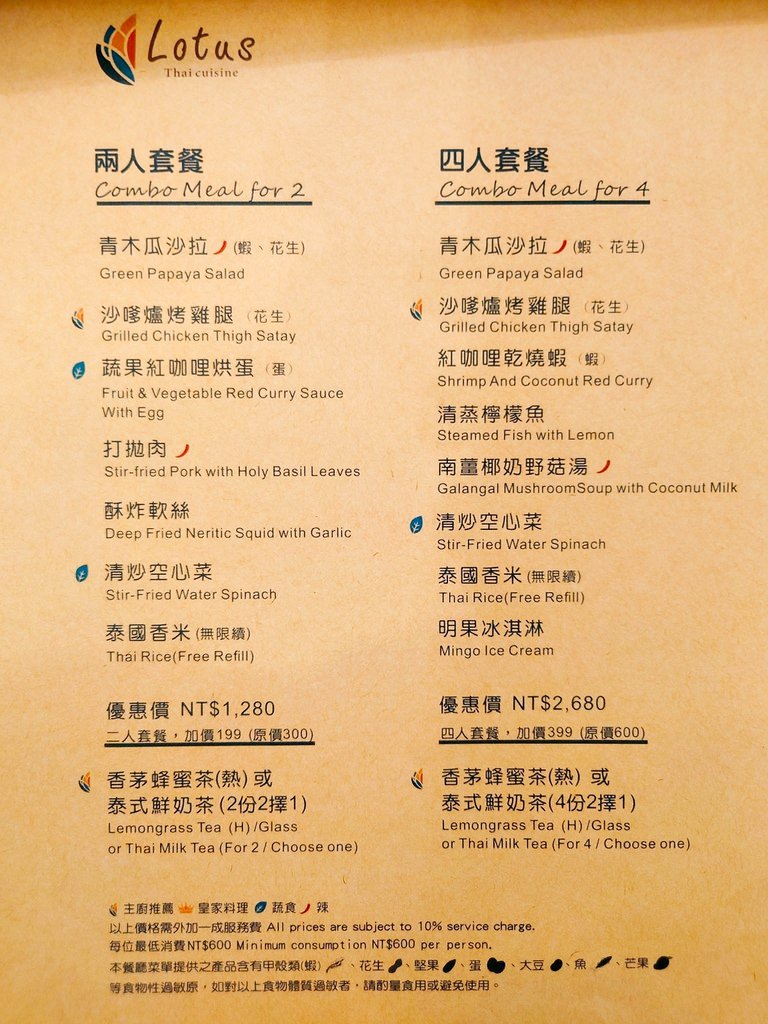 Lotus
Thai cuisine
兩人套餐
Combo Meal for 2
青木瓜沙拉 (蝦、花生)
Green Papaya Salad
沙嗲爐烤雞腿 (花生)
Grilled Chicken Thigh Satay
蔬果紅咖哩烘蛋 (蛋)
Fruit & Vegetable Red Curry Sauce
With Egg
打拋肉
Stir-fried Pork with Holy Basil Leaves
酥炸軟絲
Deep Fried Neritic Squid with Garlic
清炒空心菜
Stir-Fried Water Spinach
泰國香米 (無限續)
Thai Rice(Free Refill)
優惠價 NT$1,280
二人套餐，加價199 (原價300)
香茅蜂蜜茶(熱) 或
泰式鮮奶茶 (2份2擇1)
Lemongrass Tea (H) /Glass
or Thai Milk Tea (For 2 / Choose one)
四人套餐
Combo Meal for 4
青木瓜沙拉 (蝦、花生)
Green Papaya Salad
沙嗲爐烤雞腿 (花生)
Grilled Chicken Thigh Satay
紅咖哩乾燒蝦 (蝦)
Shrimp And Coconut Red Curry
清蒸檸檬魚
Steamed Fish with Lemon
南薑椰奶野菇湯
Galangal MushroomSoup with Coconut Milk
清炒空心菜
Stir-Fried Water Spinach
泰國香米 (無限續)
Thai Rice(Free Refill)
明果冰淇淋
Mingo Ice Cream
優惠價 NT$2,680
四人套餐，加價399 (原價600)
香茅蜂蜜茶(熱) 或
泰式鮮奶茶(4份2擇1)
Lemongrass Tea (H) /Glass
or Thai Milk Tea (For 4 / Choose one)
主廚推薦 皇家料理 蔬食 辣
以上價格需外加一成服務費 All prices are subject to 10% service charge.
每位最低消費NT$600 Minimum consumption NT$600 per person.
本餐廳菜單提供之產品含有甲殼類(蝦) 、花生 、堅果 、蛋 、大豆 、魚 、芒果
等食物性過敏原，如對以上食物體質過敏者，請酌量食用或避免使用。